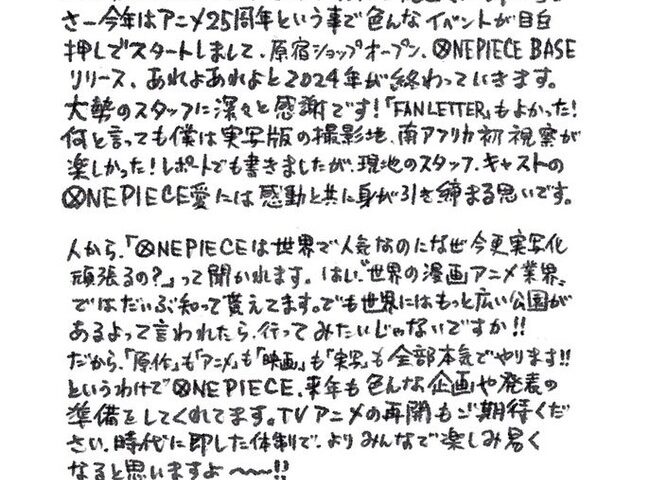 さー今年はアニメ25周年という事で色んなイベントが目白
押しでスタートしまして、原宿ショップオープン、ONEPIECE BASE
リリース、あれよあれよと2024年が終わっていきます。
大勢のスタッフに深々と感謝です!「FAN LETTER」もよかった!
何と言っても僕は実写版の撮影地、南アフリカ初視察が
楽しかった!レポートでも書きましたが、現地のスタッフ、キャストの
ONEPIECE愛には感動と共に身が引き締まる思いです。
人から、「ONEPIECEは世界で人気なのになぜ今更実写化
頑張るの?」って聞かれます。はい、"世界の漫画アニメ業界"
ではだいぶ知って貰えてます。でも世界にはもっと広い公園が
あるよって言われたら、行ってみたいじゃないですか!!
だから、「原作」も「アニメ」も「映画」も「実写」も全部本気でやります!!
というわけでONEPIECE、来年も色んな企画や発表の
準備をしてくれてます。TVアニメの再開もご期待くだ
さい。時代に即した体制で、よりみんなで楽しみ易く
なると思いますよ〜〜!!